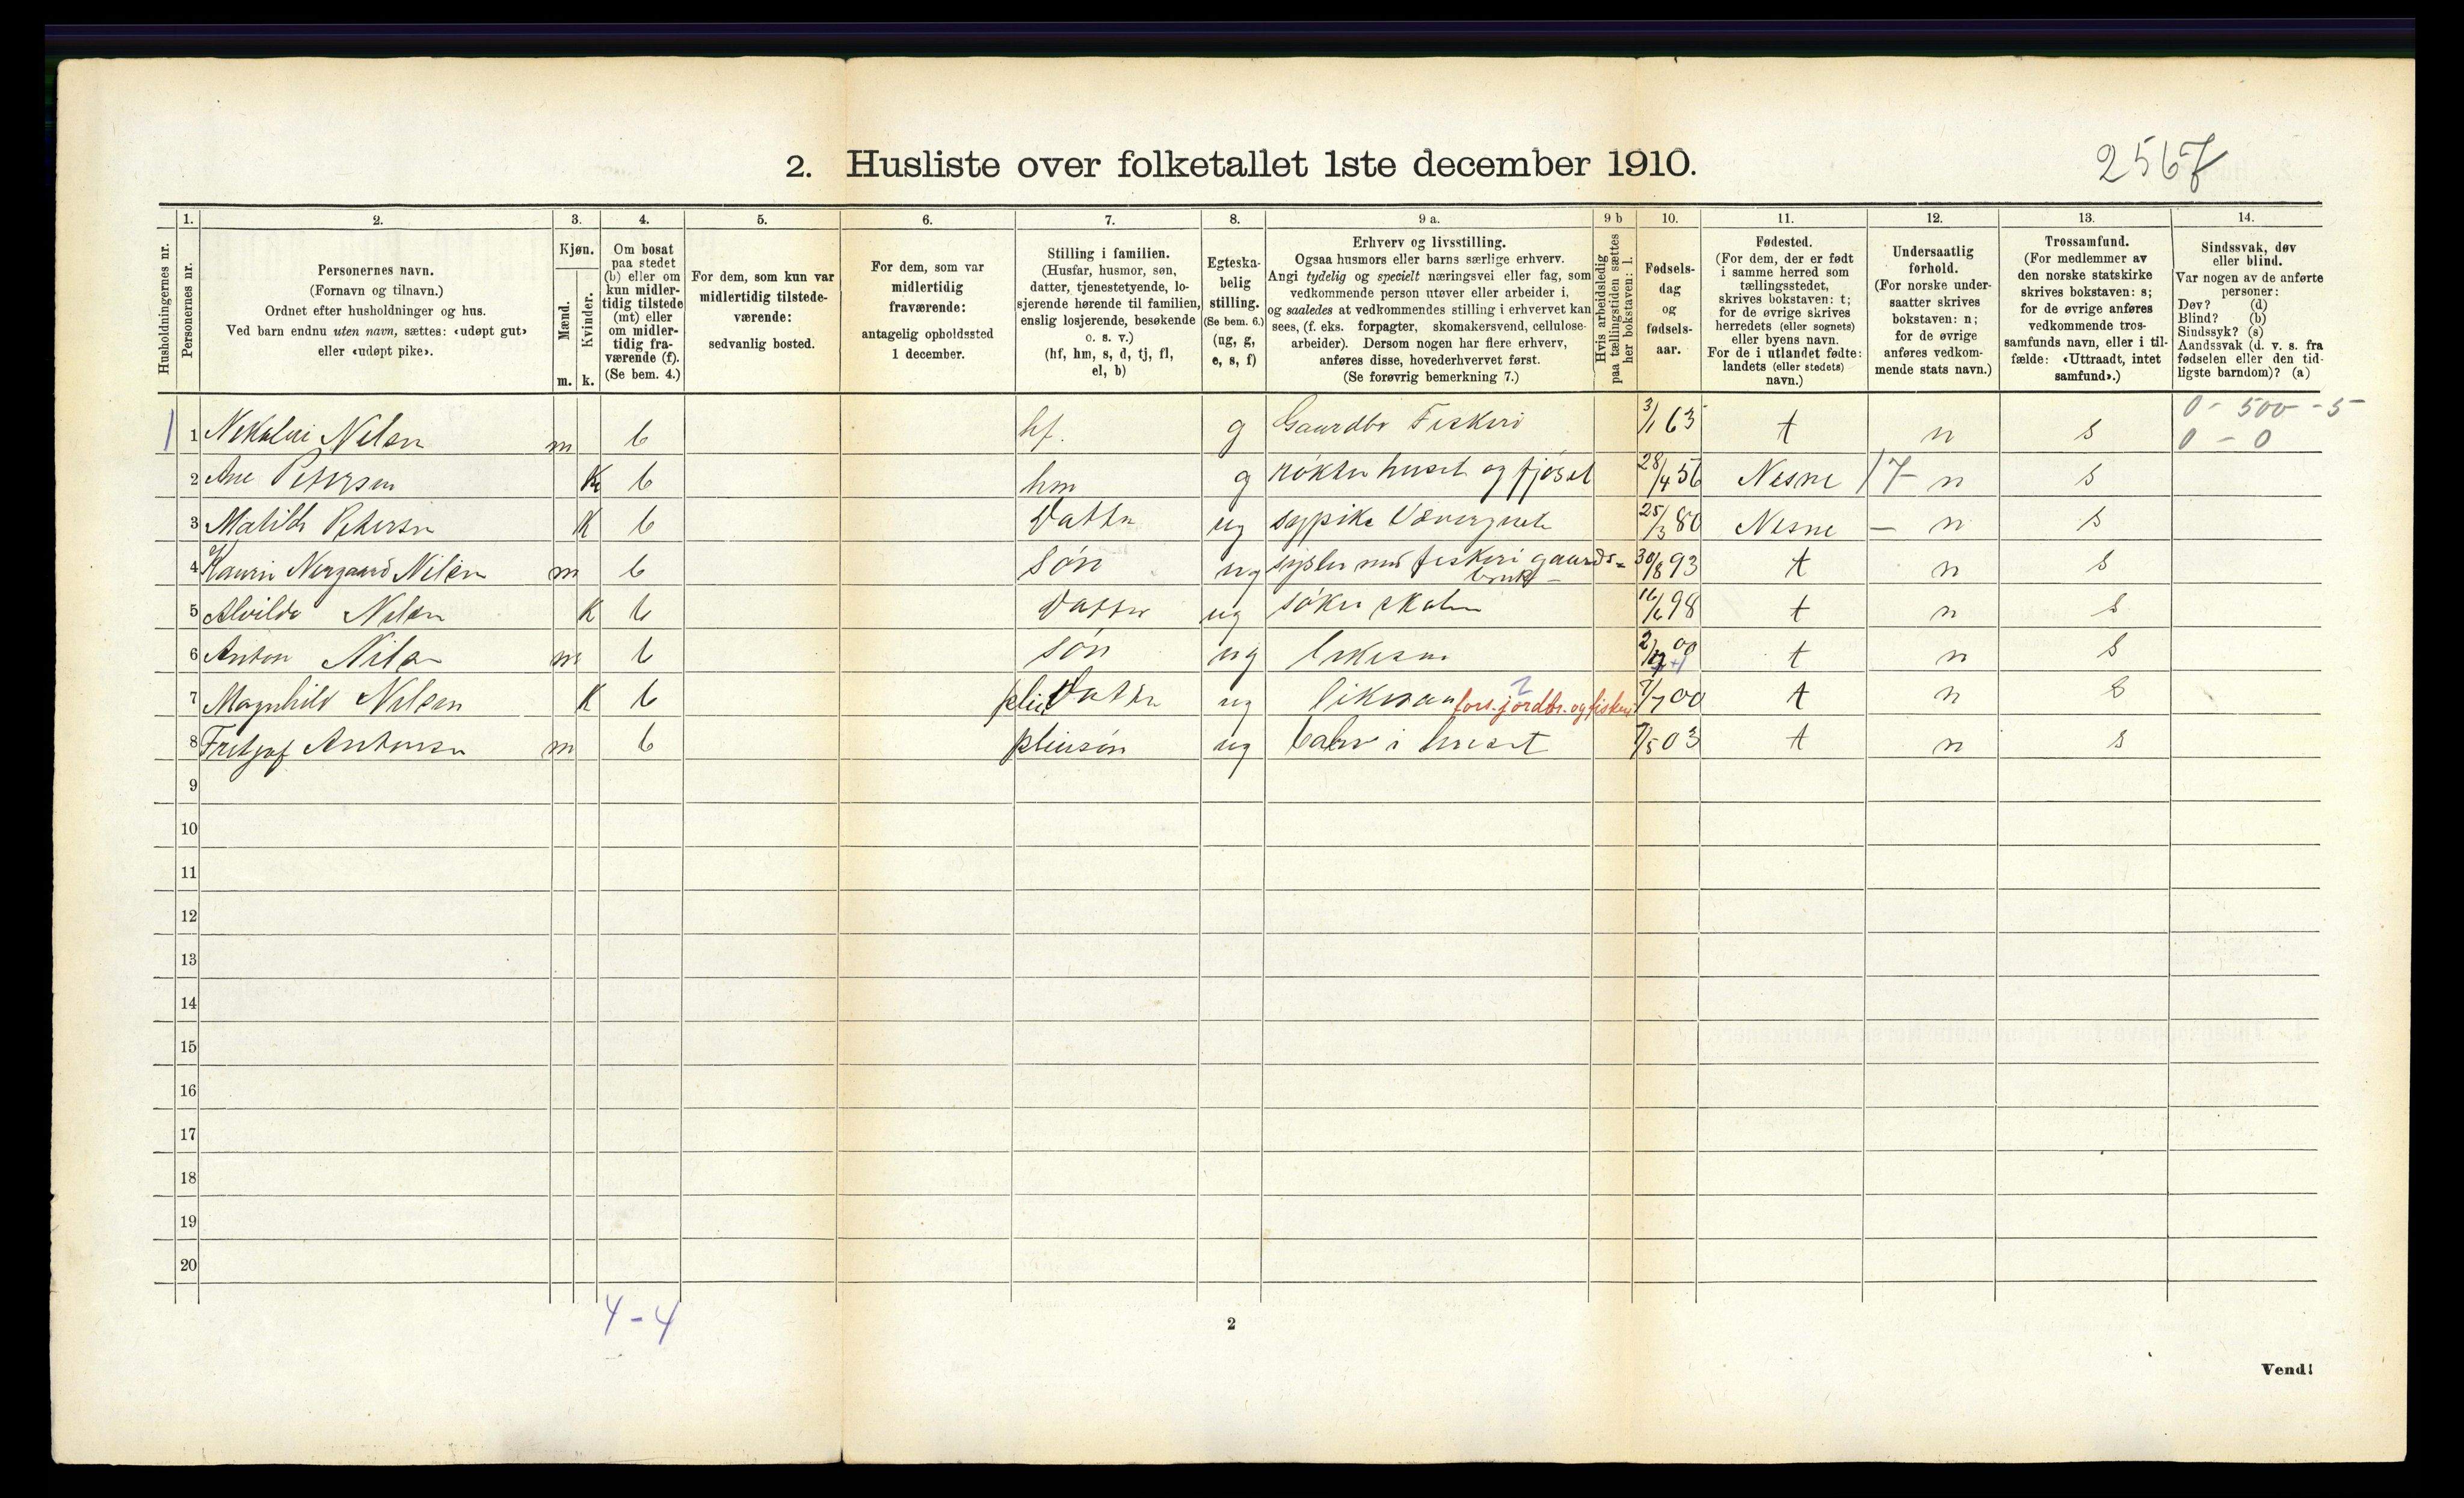 2567
2. Husliste over folketallet 1ste december 1910.
Husholdningernes nr.
1. Personernes nr.
2. Personernes navn.
(Fornavn og tilnavn.)
Ordnet efter husholdninger og hus.
Ved barn endnu uten navn, sættes: «udøpt gut»
eller «udøpt pike».
3. Kjøn.
Mænd. m.
Kvinder. k.
4. Om bosat
paa stedet
(b) eller om
kun midler-
tidig tilstede
(mt) eller
om midler-
tidig fra-
værende (f).
(Se bem. 4.)
5. For dem, som kun var
midlertidig tilstede-
værende:
sedvanlig bosted.
6. For dem, som var
midlertidig
fraværende:
antagelig opholdssted
1 december.
7. Stilling i familien.
(Husfar, husmor, søn,
datter, tjenestetyende, lo-
sjerende hørende til familien,
enslig losjerende, besøkende
o. s. v.)
(hf, hm, s, d, tj, fl,
el, b)
8. Egteska-
belig
stilling.
(Se bem. 6.)
(ug, g,
e, s, f)
9 a. Erhverv og livsstilling.
Ogsaa husmors eller barns særlige erhverv.
Angi tydelig og specielt næringsvei eller fag, som
vedkommende person utøver eller arbeider i,
og saaledes at vedkommendes stilling i erhvervet kan
sees, (f. eks. forpagter, skomakersvend, cellulose-
arbeider). Dersom nogen har flere erhverv,
anføres disse, hovederhvervet først.
(Se forøvrig bemerkning 7.)
9 b Hvis arbeidsledig
paa tællingstiden sættes
her bokstaven: l.
10. Fødsels-
dag
og
fødsels-
aar.
11. Fødested.
(For dem, der er født
i samme herred som
tællingsstedet,
skrives bokstaven: t;
for de øvrige skrives
herredets (eller sognets)
eller byens navn.
For de i utlandet fødte:
landets (eller stedets)
navn.)
12. Undersaatlig
forhold.
(For norske under-
saatter skrives
bokstaven: n;
for de øvrige
anføres vedkom-
mende stats navn.)
13. Trossamfund.
(For medlemmer av
den norske statskirke
skrives bokstaven: s;
for de øvrige anføres
vedkommende tros-
samfunds navn, eller i til-
fælde: «Uttraadt, intet
samfund».)
14. Sindssvak, døv
eller blind.
Var nogen av de anførte
personer:
Døv? (d)
Blind? (b)
Sindssyk? (s)
Aandssvak (d. v. s. fra
fødselen eller den tid-
ligste barndom)? (a)
1 1 Nilsen m b hf. g Gaardbr Fiskeri 3/1 63 t n s 0 - 500 - 5
0 - 0
2 Ane Petersen K b hm g røkter huset og fjøset 28/4 56 Nesne 17- n s
3 Matilde Petersen K b Datter ug sypike 25/3 80 Nesne - n s
4 Nergaard Nilsen m b søn ug sysler med fiskeri gaards= 30/8 93 t n s
bruk -
5 Alvilda Nilsen K b Datter ug søker skolen 16/6 98 t n s
6 Anton Nilsen m b søn ug Likesaa 2/12 00 t n s
7 Magnhild Nilsen K b pleie Datter ug likesaa fors. jordbr. og fiskeri 7/7 00 t n s
8 Fritjof Antonsen m b pleiesøn ug barn i huset 7/5 03 t n s
9
10
11
12
13
14
15
16
17
18
19
20
4 - 4
2
Vend!